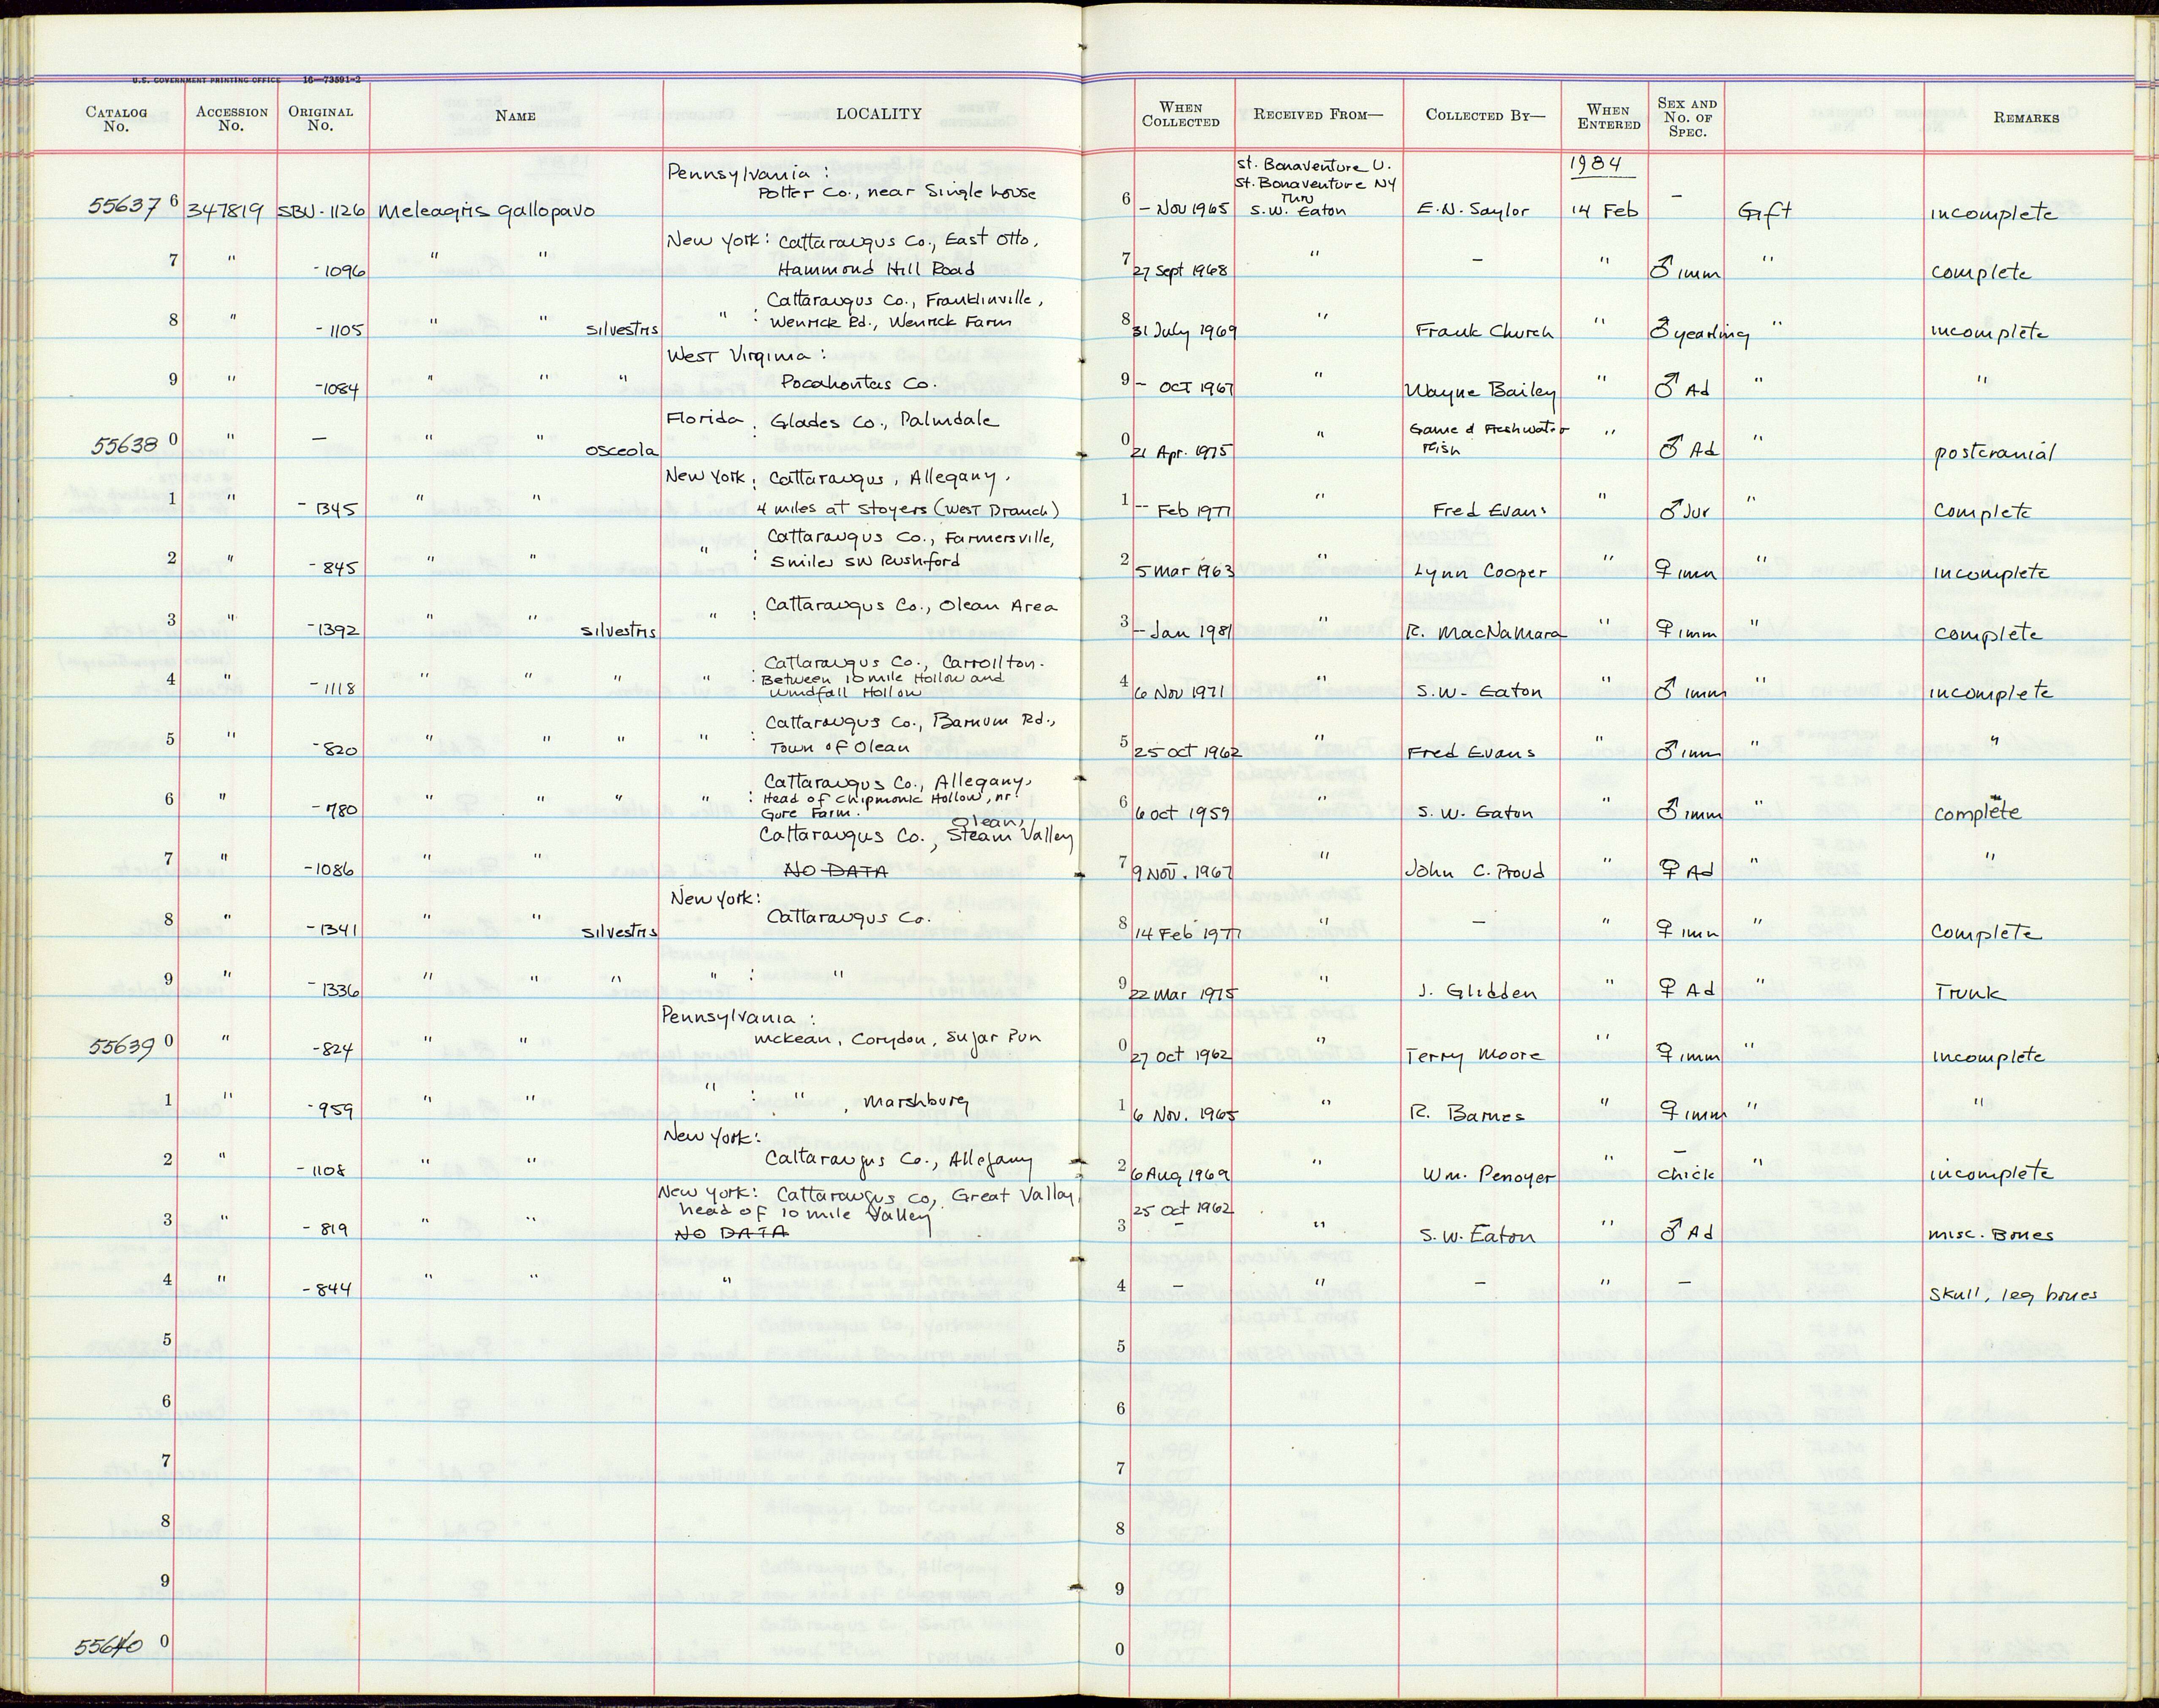 U.S. GOVERNMENT PRINTING OFFICE 16—73591-2
CATALOG No. ACCESSION No. ORIGINAL No. NAME LOCALITY WHEN COLLECTED RECEIVED FROM— COLLECTED BY— WHEN ENTERED SEX AND No. OF SPEC. REMARKS
Pennsylvania : St. Bonaventure U. 1984
Potter Co., near Single house St. Bonaventure NY
Thru
55637 6 347819 SBU-1126 Meleagris gallopavo 6 - Nov 1965 S.W. Eaton E.N. Saylor 14 Feb - Gift incomplete
New York: Cattaraugus Co., East Otto,
7 " -1096 " " Hammond Hill Road 7 27 Sept 1968 " - " ♂ imm " complete
Cattaraugus Co., Franklinville,
8 " -1105 " " silvestris " : Wenrick Rd., Wenrick Farm 8 31 July 1969 " Frank Church " ♂ yearling " incomplete
West Virginia :
9 " -1084 " " " Pocahontas Co. 9 - Oct 1967 " Wayne Bailey " ♂ Ad " "
Florida : Glades Co., Palmdale Game & Freshwater
55638 0 " — " " osceola 0 21 Apr. 1975 " Fish " ♂ Ad " postcranial
New York : Cattaraugus, Allegany,
1 " -1345 " " 4 miles at Stoyers (West Branch) 1 -- Feb 1977 " Fred Evans " ♂ Juv " Complete
Cattaraugus Co., Farmersville,
2 " -845 " " " : 5 miles SW Rushford 2 5 Mar 1963 " Lynn Cooper " ♀ imm " incomplete
Cattaraugus Co., Olean Area
3 " -1392 " " silvestris " : 3 -- Jan 1981 " R. MacNamara " ♀ imm " complete
Cattaraugus Co., Carrollton.
4 " -1118 " " " " : Between 10 mile Hollow and 4 6 Nov 1971 " S.W. Eaton " ♂ imm " incomplete
Windfall Hollow
Cattaraugus Co., Barnum Rd.,
5 " -820 " " " " : Town of Olean 5 25 Oct 1962 " Fred Evans " ♂ imm " "
Cattaraugus Co., Allegany,
6 " -780 " " " " : Head of Chipmonk Hollow, nr. 6 6 Oct 1959 " S. W. Eaton " ♂ imm " complete
Gore Farm.
Olean,
Cattaraugus Co., Steam Valley
7 " -1086 " " NO DATA 7 9 Nov. 1967 " John C. Proud " ♀ Ad " "
New York:
8 " -1341 " " silvestris Cattaraugus Co. 8 14 Feb 1977 " - " ♀ imm " Complete
9 " -1336 " " " " : " 9 22 Mar 1975 " J. Glidden " ♀ Ad " Trunk
Pennsylvania :
55639 0 " -824 " " McKean, Corydon, Sugar Run 0 27 Oct 1962 " Terry Moore " ♀ imm " incomplete
1 " -959 " " " : " , Marshburg 1 6 Nov. 1965 " R. Barnes " ♀ imm " "
New York:
2 " -1108 " " Cattaraugus Co., Allegany 2 6 Aug 1969 " Wm. Penoyer " - chick " incomplete
New York: Cattaraugus Co, Great Valley, 25 Oct 1962
head of 10 mile Valley
3 " -819 " " NO DATA 3 - " S. W. Eaton " ♂ Ad misc. Bones
4 " -844 " " " 4 - " - " - Skull, leg bones
5 5
6 6
7 7
8 8
9 9
55640 0 0